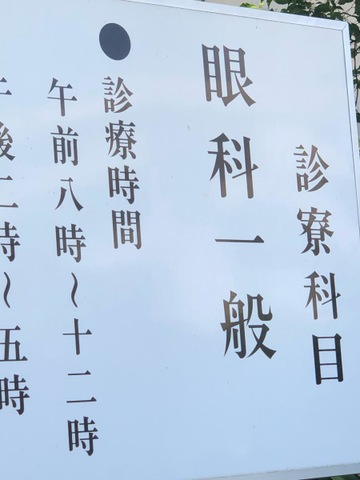 診寮科目
眼科一般
●診療時間
午前八時～十二時
午後二時～五時